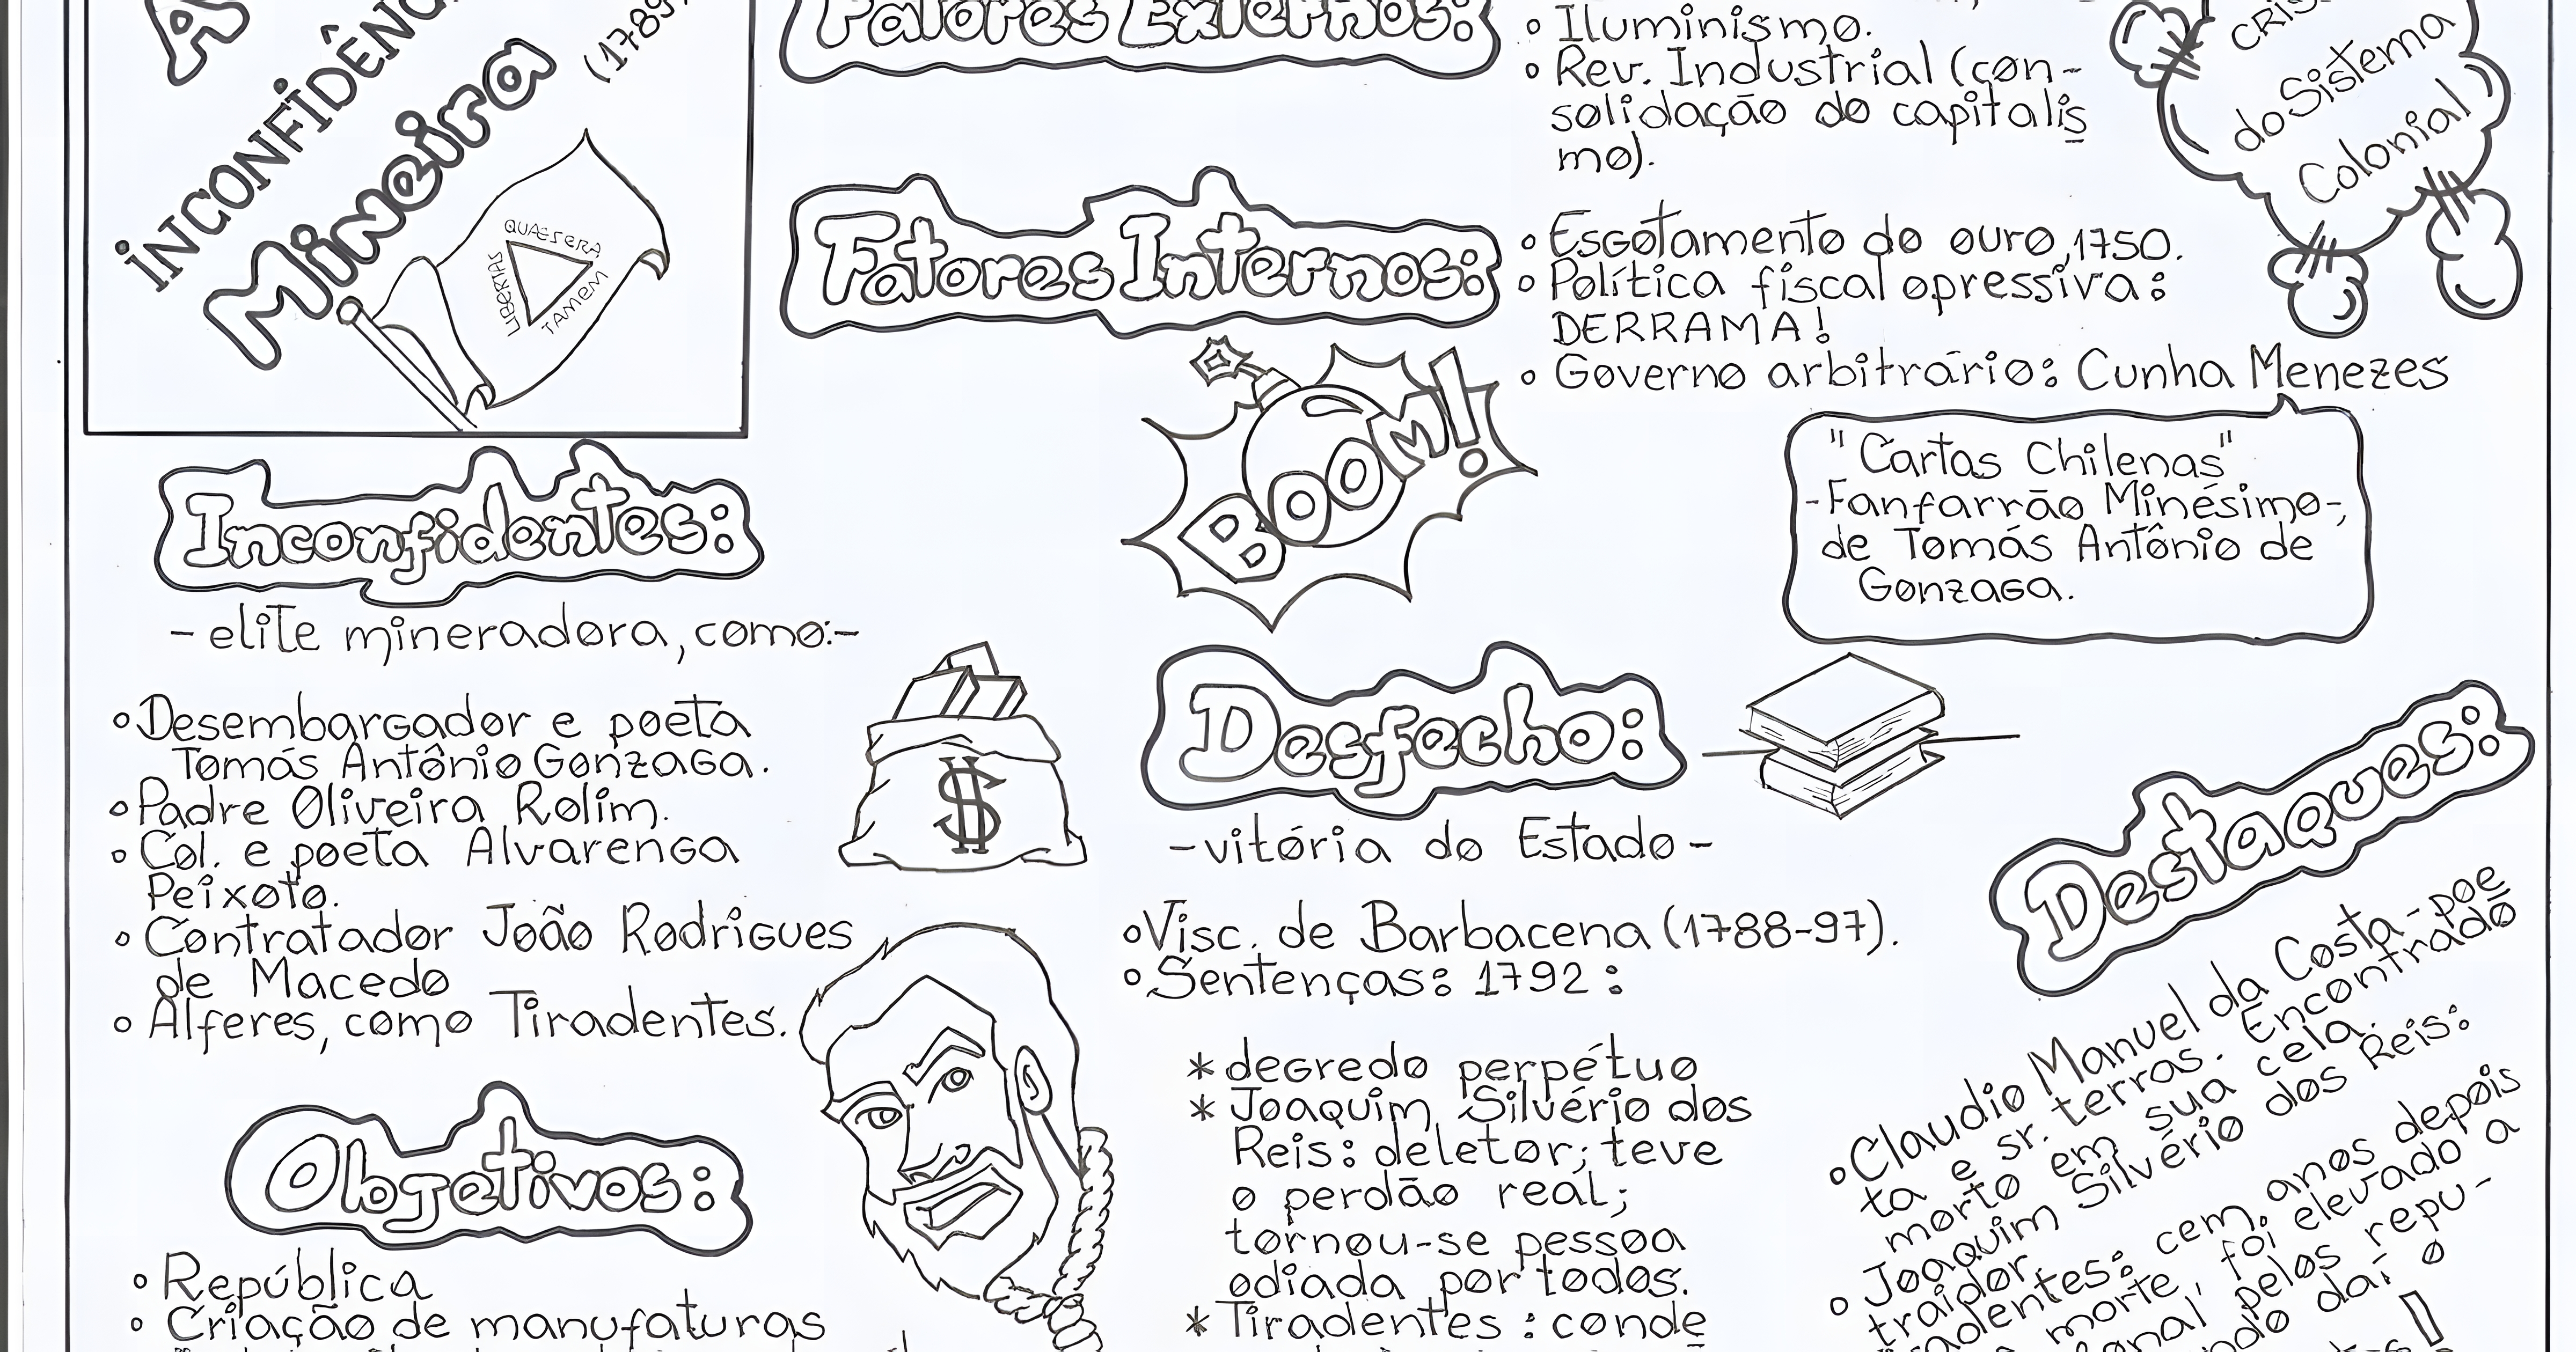 A
INCONFIDÊNC
Mineira
(1789
QUAE SERA
LIBERTAS
TAMEM
Fatores Externos:
• Iluminismo.
• Rev. Industrial (con-
solidação do capitalis
mo).
CRIS
do Sistema
Colonial
Fatores Internos:
• Esgotamento do ouro, 1750.
• Política fiscal opressiva:
DERRAMA!
• Governo arbitrário: Cunha Menezes
"Cartas Chilenas"
-Fanfarrão Minésimo-,
de Tomás Antônio de
Gonzaga.
BOOM!
Inconfidentes:
-elite mineradora, como:-
• Desembargador e poeta
Tomás Antônio Gonzaga.
• Padre Oliveira Rolim.
• Col. e poeta Alvarenga
Peixoto.
• Contratador João Rodrigues
de Macedo
• Alferes, como Tiradentes.
$
Objetivos:
• República
• Criação de manufaturas
Desfecho:
-vitória do Estado-
• Visc. de Barbacena (1788-97).
• Sentenças: 1792:
* degredo perpétuo
* Joaquim Silvério dos
Reis: deletor; teve
o perdão real;
tornou-se pessoa
odiada por todos.
* Tiradentes: conde
Destaques:
• Claudio Manuel da Costa-poe
ta e sr. terras. Encontrado
morto em sua cela.
• Joaquim Silvério dos Reis:
traidor.
adentes: cem anos depois
morte, foi elevado a
onal' pelos repu-
ndo daí o
!